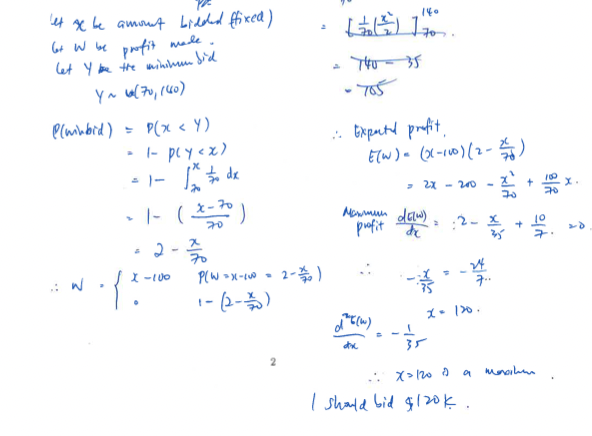 let x be amount bidded (fixed)
let W be profit made.
let Y be the minimum bid
Y ~ U(70,140)
P(win bid) = P(x < Y)
= 1 - P(Y < x)
= 1 - ∫_70^x 1/70 dx
= 1 - ( (x-70)/70 )
= 2 - x/70
∴ W = { x-100 P(W=x-100 = 2-x/70)
0 1-(2-x/70)
2
= [ 1/70 (x²/2) ]_70^140
= 140 - 35
= 105
∴ Expected profit,
E(W) = (x-100)(2 - x/70)
= 2x - 200 - x²/70 + 100/70 x.
Maximum profit dE(W)/dx = : 2 - x/35 + 10/7 = 0
∴ -x/35 = -24/7
x = 120.
d²E(W)/dx = -1/35
∴ x=120 is a maximum.
I should bid $120K.